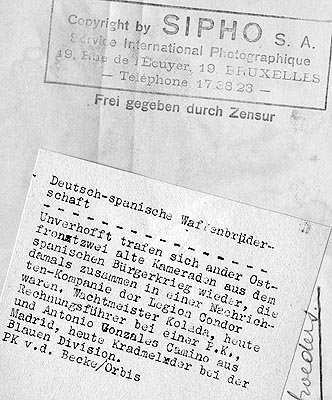 Copyright by SIPHO S. A.
Service International Photographique
19, Rue de l'Ecuyer, 19 BRUXELLES
— Téléphone 17.38 23 —
Frei gegeben durch Zensur
Deutsch-spanische Waffenbrüder-
schaft
- - - - - - - - - - - - - - -
Unverhofft trafen sich ander Ost-
frontzwei alte Kameraden aus dem
spanischen Bürgerkrieg wieder, die
damals zusammen in einer Nachrich-
ten-Kompanie der Legion Condor
waren. Wachtmeister Kolada, heute
Rechnungsführer bei einer P.K.,
und Antonio Gonzales Camino aus
Madrid, heute Kradmelder bei der
Blauen Division.
PK v.d. Becke/Orbis